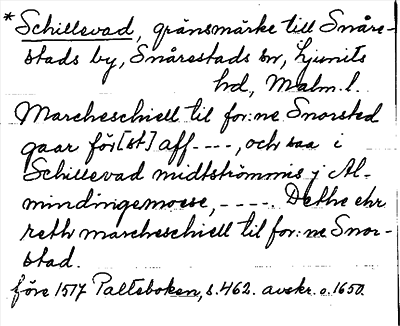 *Schillevad, gränsmärke till Snåre-
stads by, Snårestads sn, Ljunits
hd, Malm. l.
Marcheschiell til for:ne Snorsted
gaar för[st] aff ----, och saa i
Schillevad midtströmmis j Al-
mindingemosse, ----. Dethe ehr
reth marcheschiell til for:ne Snor-
stad.
före 1517 Palteboken, s. 462. avskr. o. 1650.